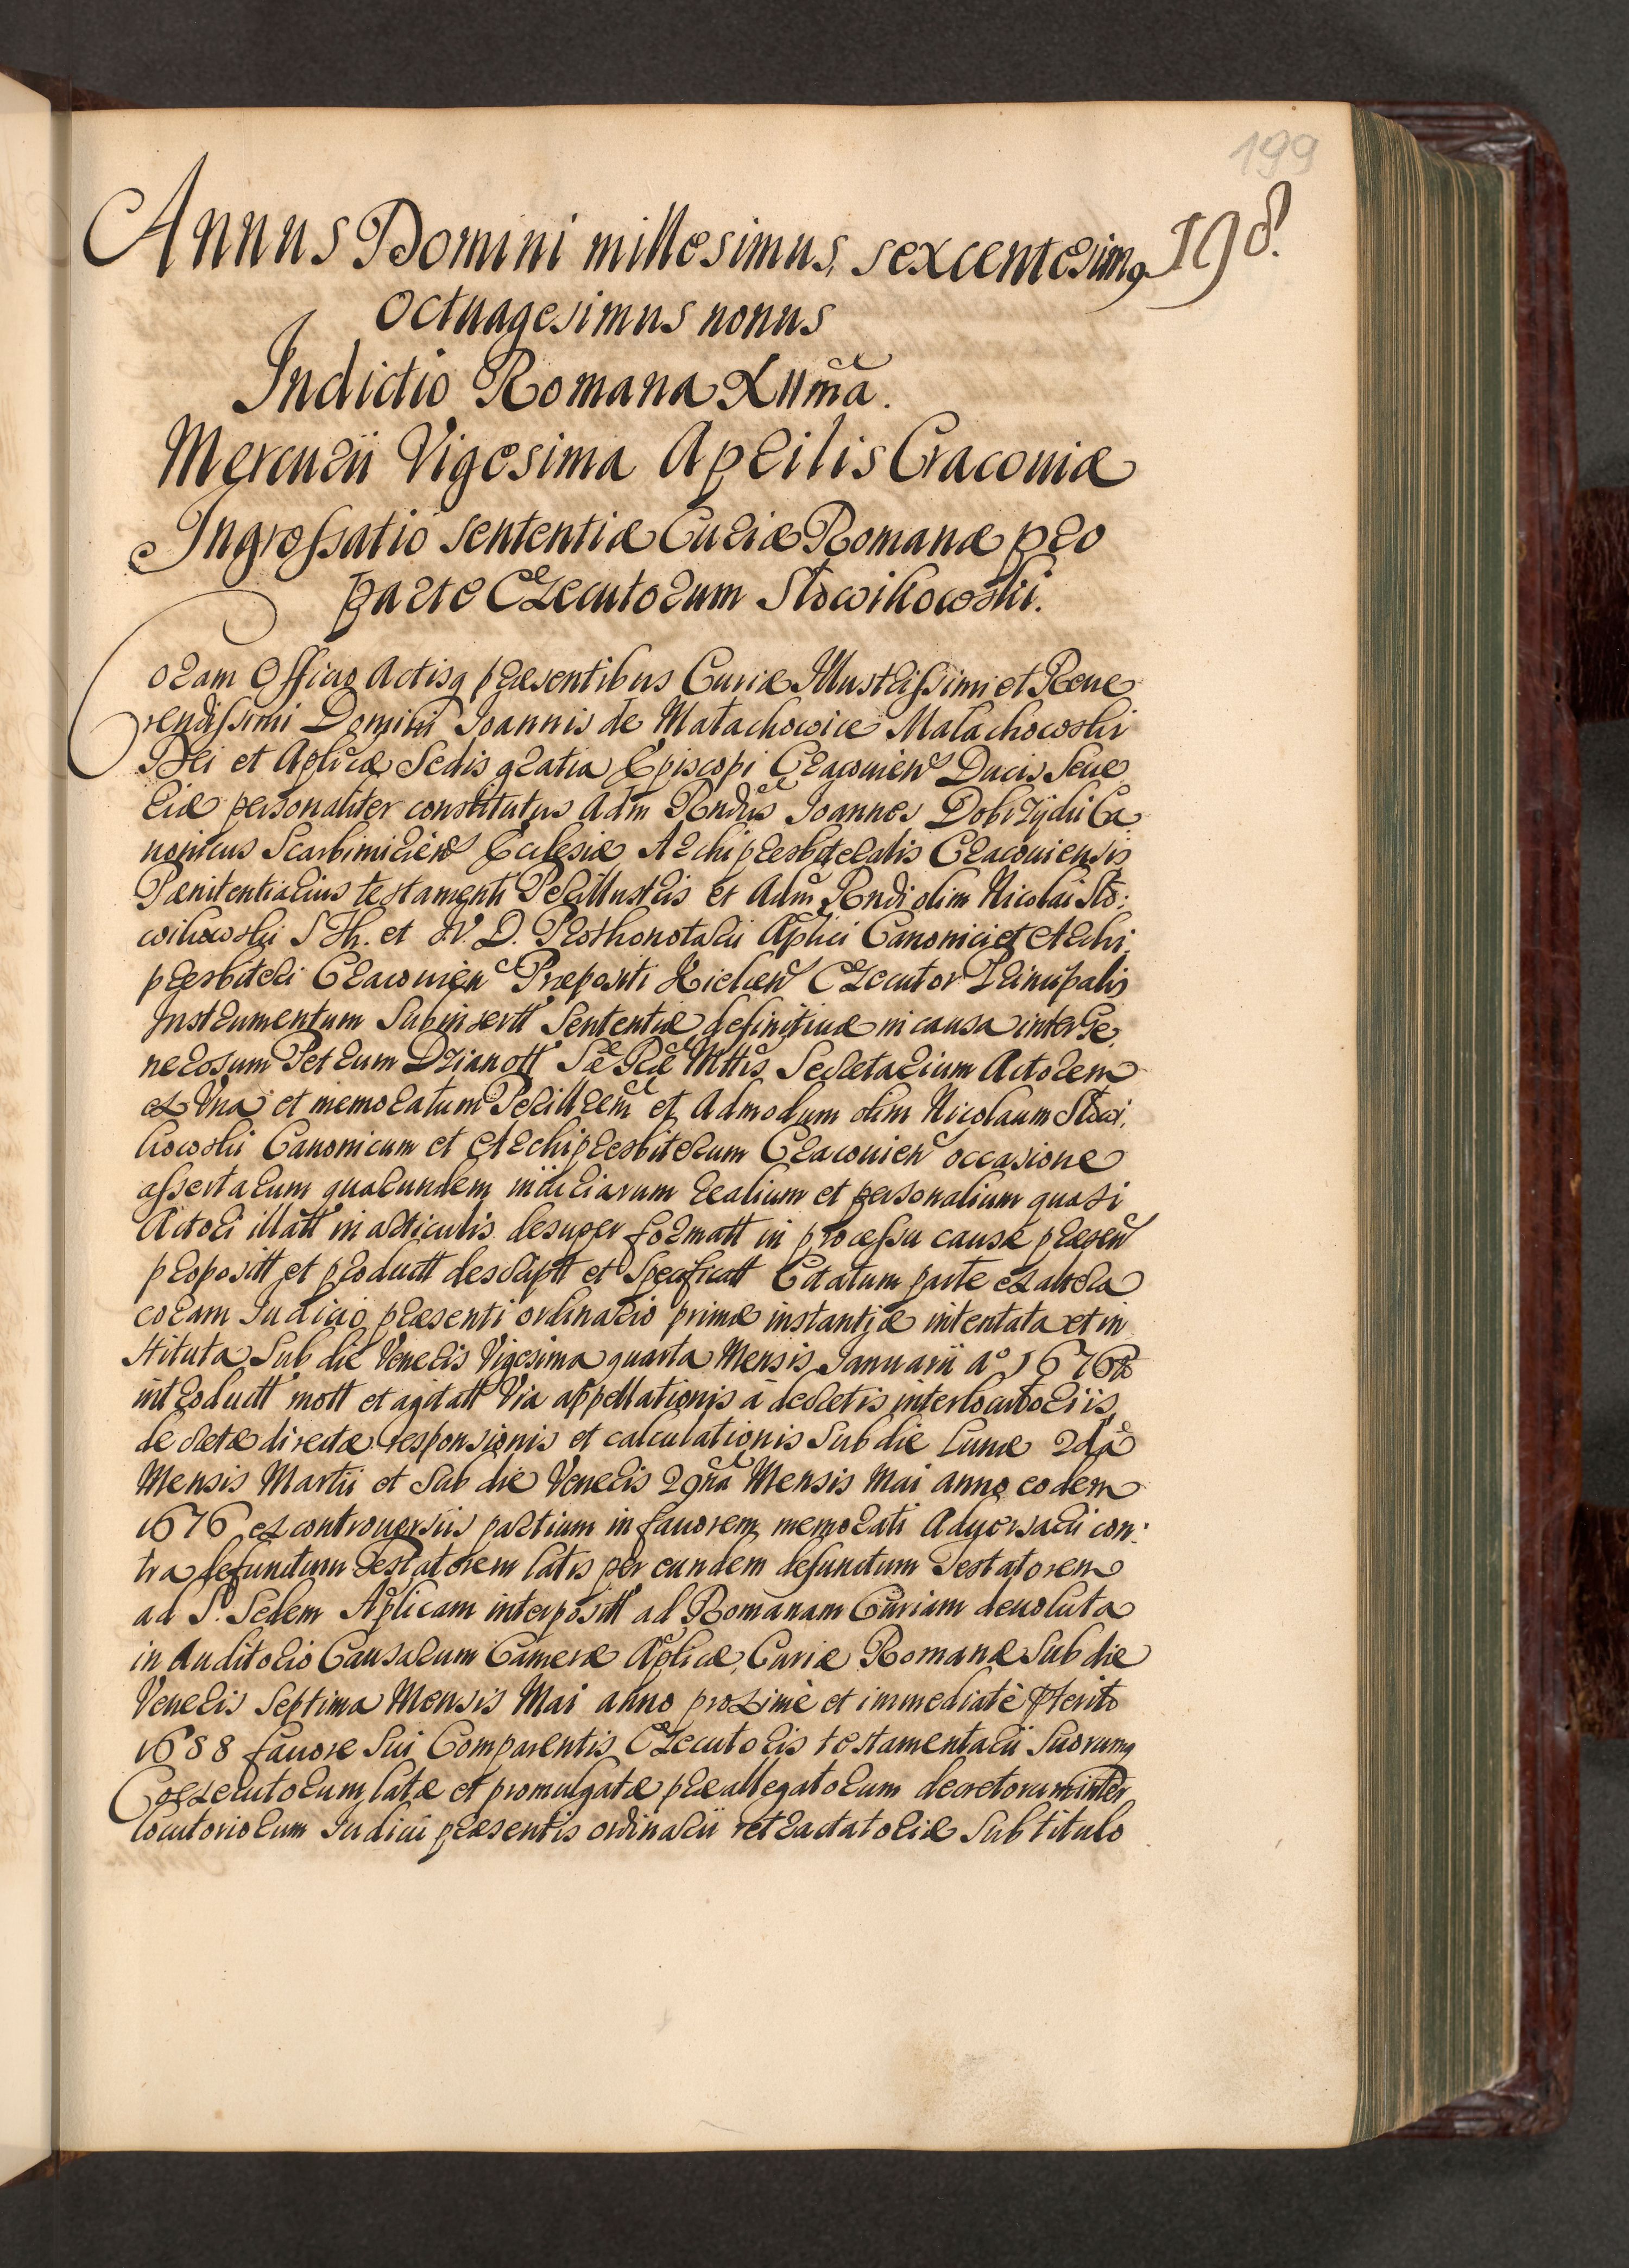 199
198.
Annus Domini millesimus, sexcentesimq
octuagesimus nonus
Indictio Romana XIIma.
Mercurii Vigesima Aprilis Cracoviæ
Ingrossatio sententiæ Curiæ Romanæ pro
parte Executorum Słowikowski.
Coram Officio Actisq præsentibus Curiæ Illustrissimi et Reue
rendissimi Domini Ioannis de Małachowice Małachowski
Dei et Aplicæ Sedis gratia Episcopi Cracouien Ducis Seue
riæ personaliter constitutus Adm Rndus Ioannes Dobrzyński Ca
nonicus Scarbimirien Ecclesiæ Archipresbiteralis Cracouiensis
Pænitentiarius testamenti Perillustris et Adm Rndi olim Nicolai Sło:
wikowski S Th. et I.V.D. Prothonotarii Aplici Canonici et Archi
presbiteri Cracouien Præpositi Kielcen Executor Principalis
Instrumentum Subinsertt Sententiæ definitiuæ in causa inter Ge
nerosum Petrum Dzianott Sæ Ræ Mttis Secretarium Actorem
ex Vna et memoratum Perillrem et Admodum olim Nicolaum Słowi
kowski Canonicum et Archipresbiterum Cracouien occasione
assertarum quarundem iniuriarum realium et personalium quasi
Actori illatt in articulis desuper formatt in processu causæ præsen
propositt et productt descriptt et Specificatt Citatum parte ex altera
coram Iudicio præsenti ordinario primæ instantiæ intentata et in
stituta Sub die Veneris Vigesima quarta Mensis Ianuarii Ao 1676to
introductt mott et agitatt Via appellationis a decretis interlocutoriis
decretæ directæ responsionis et calculationis Sub die Lunæ 2da
Mensis Martii et Sub die Veneris 29na Mensis Mai anno eodem
1676 ex controuersiis partium in fauorem memorati Aduersarii con:
tra defunctum Testatorem latis per eundem defunctum Testatorem
ad S. Sedem Aplicam interpositt ad Romanam Curiam deuoluta
in Auditorio Causarum Cameræ Aplicæ, Curiæ Romanæ Sub die
Veneris Septima Mensis Mai anno proxime et immediate pterito
1688 fauore Sui Comparentis Executoris testamentarii Suorumq
Coexecutorum latæ et promulgatæ præallegatorum decretorum inter
locutoriorum Iudicii præsentis ordinarii retractatoriæ Sub titulo